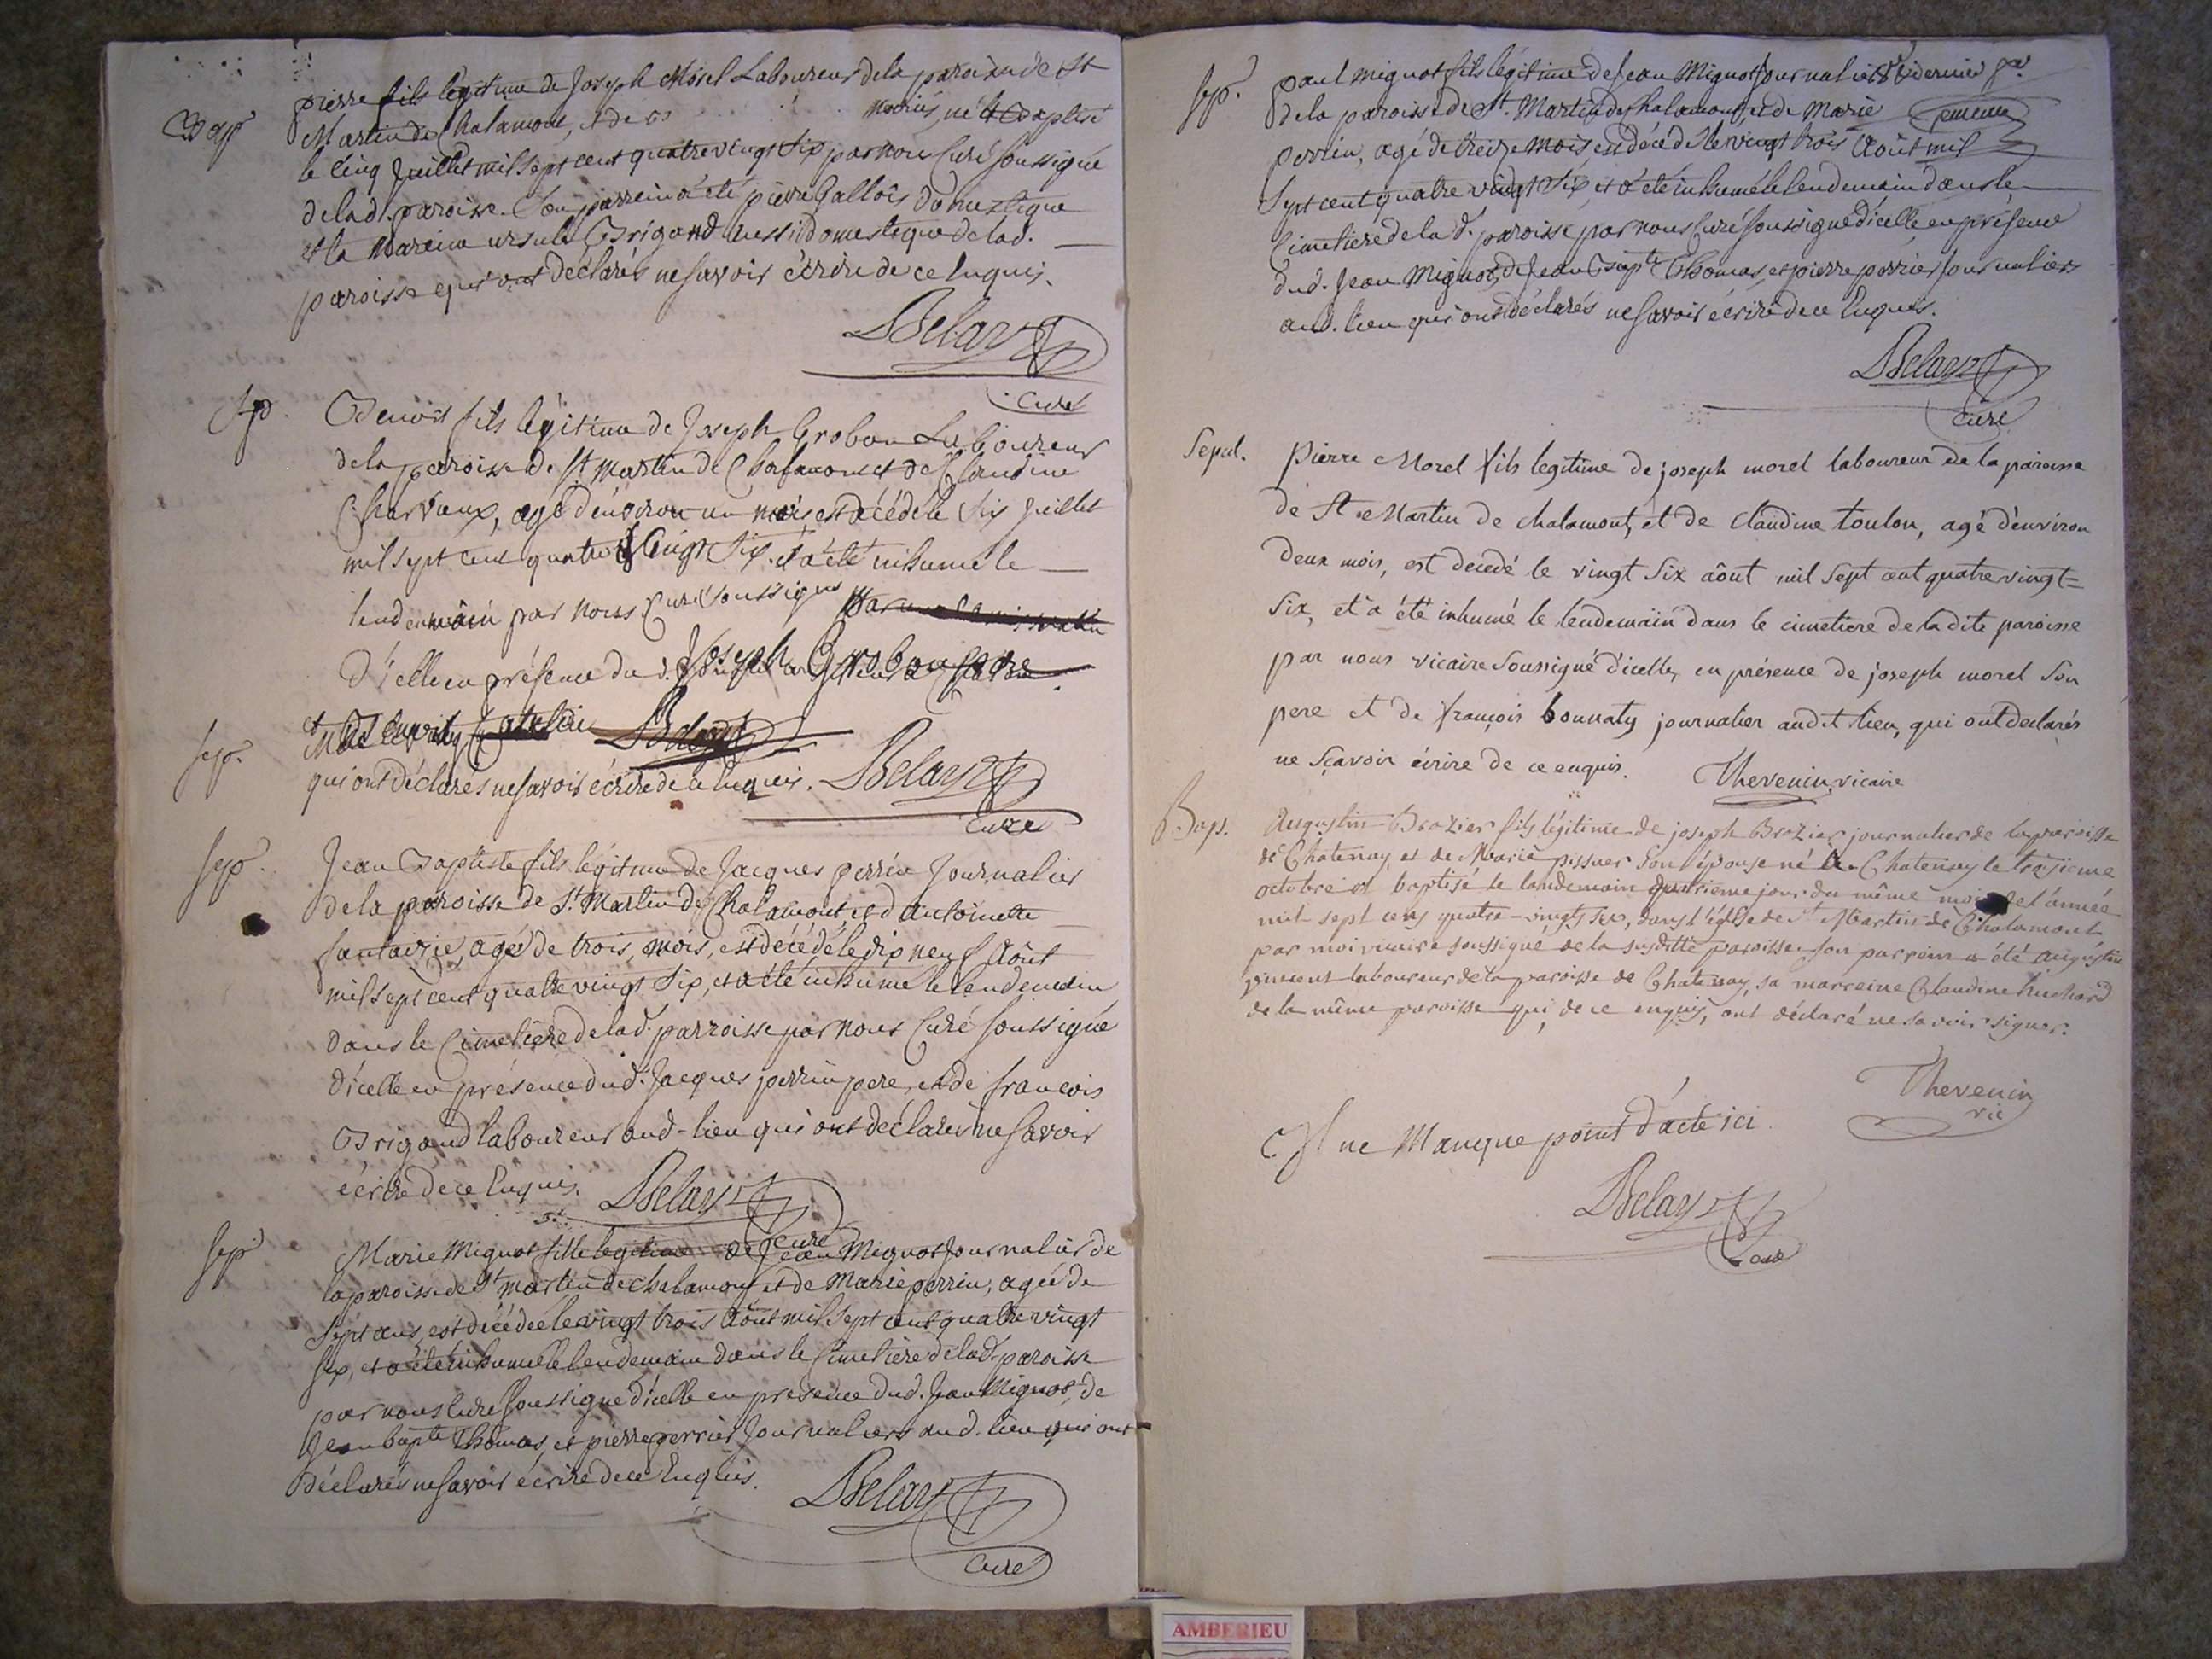 Bap.
pierre fils légitime de Joseph Morel Laboureur de la paroisse de St
Martin de Chalamont, et de mariés, né et Baptisé
le Cinq Juillet mil sept cent quatre vingt six par nous Curé soussigné
de lad. paroisse. Son parrein a été pierre Gallois domestique
et la mareine ursule Brigand aussi domestique de lad.
paroisse qui ont déclarés ne savoir écrire de ce Enquis.
Belay
Curé
Sep.
Benoit fils légitime de Joseph Groboz Laboureur
de la paroisse de St Martin de Chalamont et de Claudine
Charvieux, agé d'environ un mois est décédé le six Juillet
mil sept cent quatre Vingt six. et a été inhumé le
lendemain par nous Curé soussigné
D'icelle en présence du d. Joseph Groboz
et
Sep.
qui ont déclarés ne savoir écrire de ce Enquis. Belay
Curé
Sep.
Jean Baptiste fils légitime de Jacques perrin Journalier
de la paroisse de St. Martin de Chalamont, et d'antoinette
agé de trois mois, est décédé le dix neuf Août
mil sept cent quatre vingt six, et a été inhumé le lendemain
dans le Cimetière de lad. parroisse par nous Curé soussigné
d'icelle en présence dud. Jacques perrin pere, et de françois
Brigand laboureur aud. lieu qui ont déclarés ne savoir
écrire de ce Enquis. Belay
Curé
Sep.
Marie Mignot fille légitime de Jean Mignot Journalier de
la paroisse de St martin de chalamont et de Marie perrin, agée de
Sept ans, est décédée le vingt trois Août mil sept cent quatre vingt
six, et a été inhumée le lendemain dans le Cimetière de lad. paroisse
par nous Curé soussigné d'icelle en présence dud. Jean Mignot, de
Jean bapte Thomas, et pierre perrier Journaliers aud. lieu qui ont
déclarés ne savoir écrire de ce Enquis.
Belay
Curé
Sep.
paul mignot fils légitime de Jean Mignot Journalier dernier
de la paroisse de St. Martin de Chalamont, et de Marie
perrin, agé de treize mois, est décédé le vingt trois Août mil
Sept cent quatre vingt six, et a été inhumé le lendemain dans le
Cimetière de lad. paroisse par nous Curé soussigné d'icelle en présence
dud. Jean Mignot, de Jean Bapte Thomas, et pierre perrier Journaliers
aud. lieu qui ont déclarés ne savoir écrire de ce Enquis.
Belay
Curé
Sepul.
Pierre Morel fils legitime de joseph morel laboureur de la paroisse
de St Martin de chalamont, et de claudine toulon, agé d'environ
deux mois, est decedé le vingt six aôut mil sept cent quatre vingt=
six, et a été inhumé le lendemain dans le cimetiere de la dite paroisse
par nous vicaire soussigné d'icelle, en présence de joseph morel son
pere et de françois bonnaty journalier audit lieu, qui ont declarés
ne sçavoir écrire de ce enquis.
Thevenin, vicaire
Baps.
Augustin Brazier fils légitime de joseph Brazier journalier de la paroisse
de Chatenay et de Marie pissuer son épouse né à Chatenay le troisieme
octobre et baptisé le landemain quatrieme jour du même mois et l'année
mil sept cens quatre-vingts six, dans l'église de St Martin de Chalamont
par moi vicaire soussigné de la susditte paroisse. son parrein a été augustin
laboureur de la paroisse de Chatenay, sa marreine Claudine Richard
de la même paroisse qui, de ce enquis, ont déclaré ne savoir signer.
Thevenin
vic
Il ne Manque point d'acte ici.
Belay
Curé
AMBERIEU